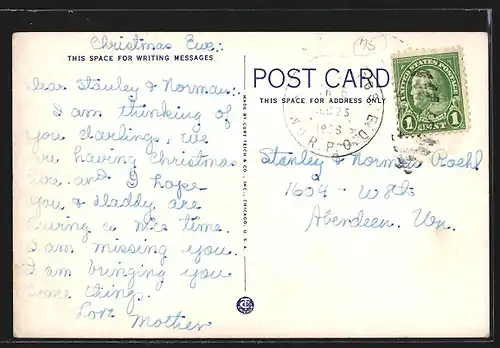 Christmas Eve:
THIS SPACE FOR WRITING MESSAGES
Dear Stanley & Norman:
I am thinking of
you darlings, we
are having Christmas
here and I hope
you & Daddy are
having a nice time.
I am missing you.
I am bringing you
some things.
Love Mother
MADE BY CURT TEICH & CO., INC., CHICAGO, U.S.A.
75
POST CARD
THIS SPACE FOR ADDRESS ONLY
UNITED STATES POSTAGE
1 CENT 1
R.P.O.
Stanley & Norman Roehl
1604 - W 8th
Aberdeen. Wn.